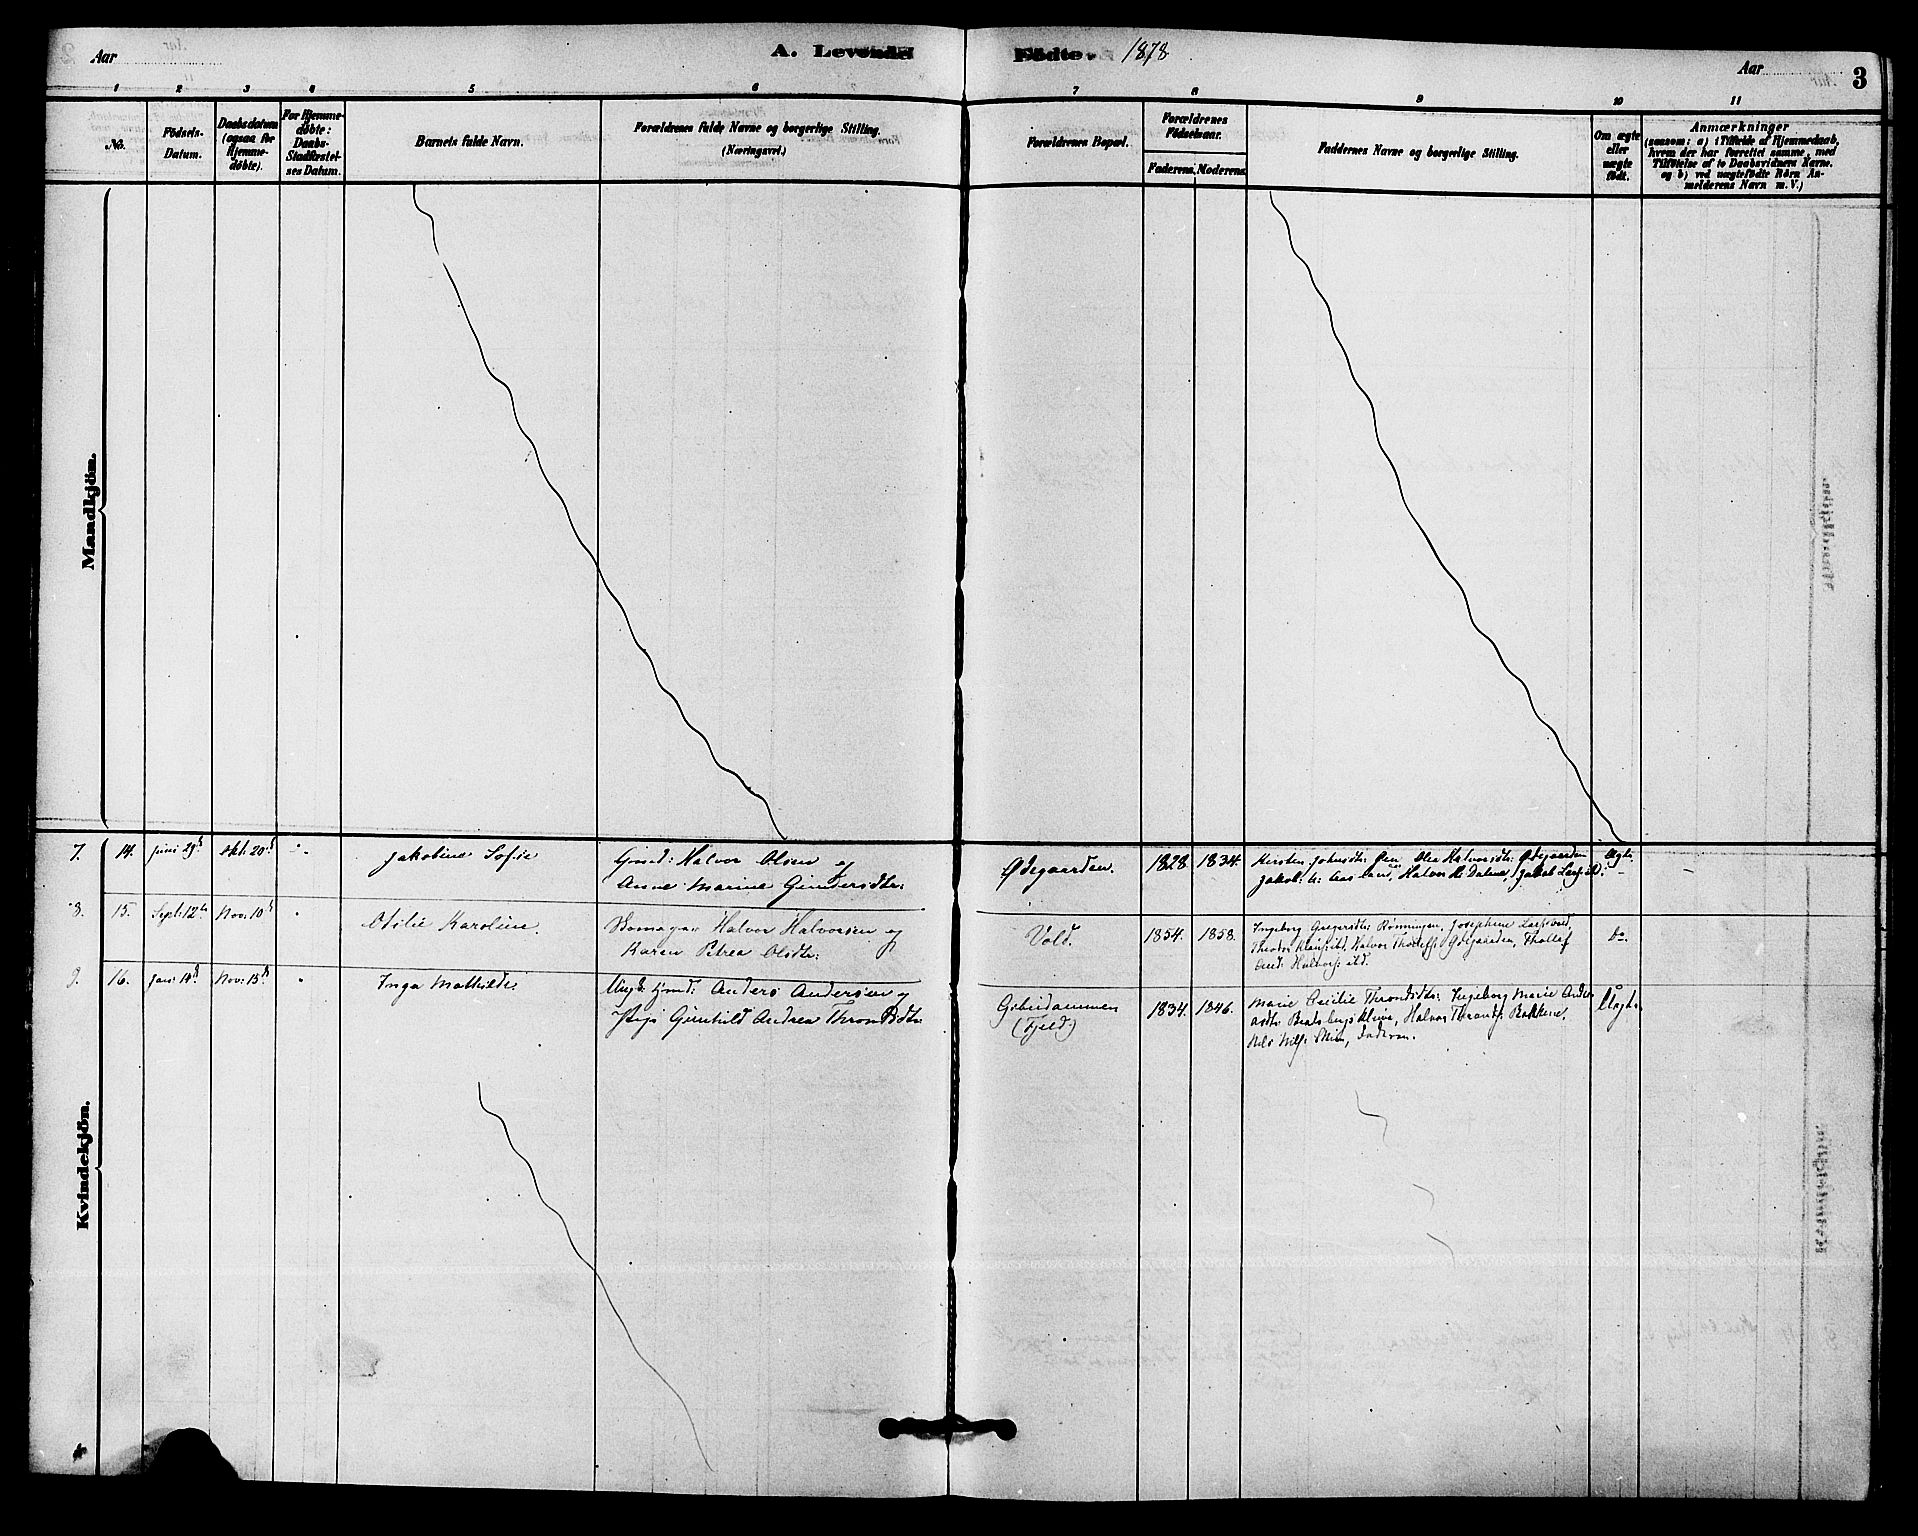 Aar
A. Levende
Födte.
1878
Aar
3
1 2 3 4 5 6 7 8 9 10 11
No.
Födsels-
Datum.
Daabsdatum
(ogsaa for
Hjemme-
døbte).
For Hjemme-
døbte:
Daabs-
Stadfæstel-
ses Datum.
Barnets fulde Navn.
Forældrenes fulde Navne og borgerlige Stilling.
(Næringsvei.)
Forældrenes Bopæl.
Forældrenes
Födselsaar.
Faderens. Moderens.
Faddernes Navne og borgerlige Stilling.
Om ægte
eller
uægte
födt.
Anmærkninger
(saasom: a) i Tilfælde af Hjemmedaab,
hvem der har forrettet samme, med
Tilföielse af to Daabsvidners Navne.
og b) ved uægtefödte Börn An-
melderens Navn m. V.)
Mandkjön.
7. 14. Juni 29d Okt: 20d Jakobine Sofie
Gmd: Halvor Olsen og
Anne Marine Gundersdtr:
Ødegaarden. 1828 1834.
Kirsten Johnsdtr: Øen, Olea Halvorsdtr: Ødegaarden
Ægte
8. 15. Sept: 12te Nov: 10d Otilie Karoline.
Halvor Halvorsen og
Karen Petrea Olsdtr:
Vold. 1854. 1858.
Ingeborg Gregersdtr: Rønningen, Josephine
Ødegaarden, Thollef
And: Halvors: ibd.
do.
9. 16. Jan: 14d Nov: 15d Inga Mathilde
Ungk: Gmd: Anders Andersen og
Pige Gunhild Andrea Throndsdtr:
(Fjeld)
1834. 1846.
Marie Cecilie Throndsdtr: Ingeborg Marie Anders
Halvor Thronds: Bakkene,
Uægte
Kvindekjön.